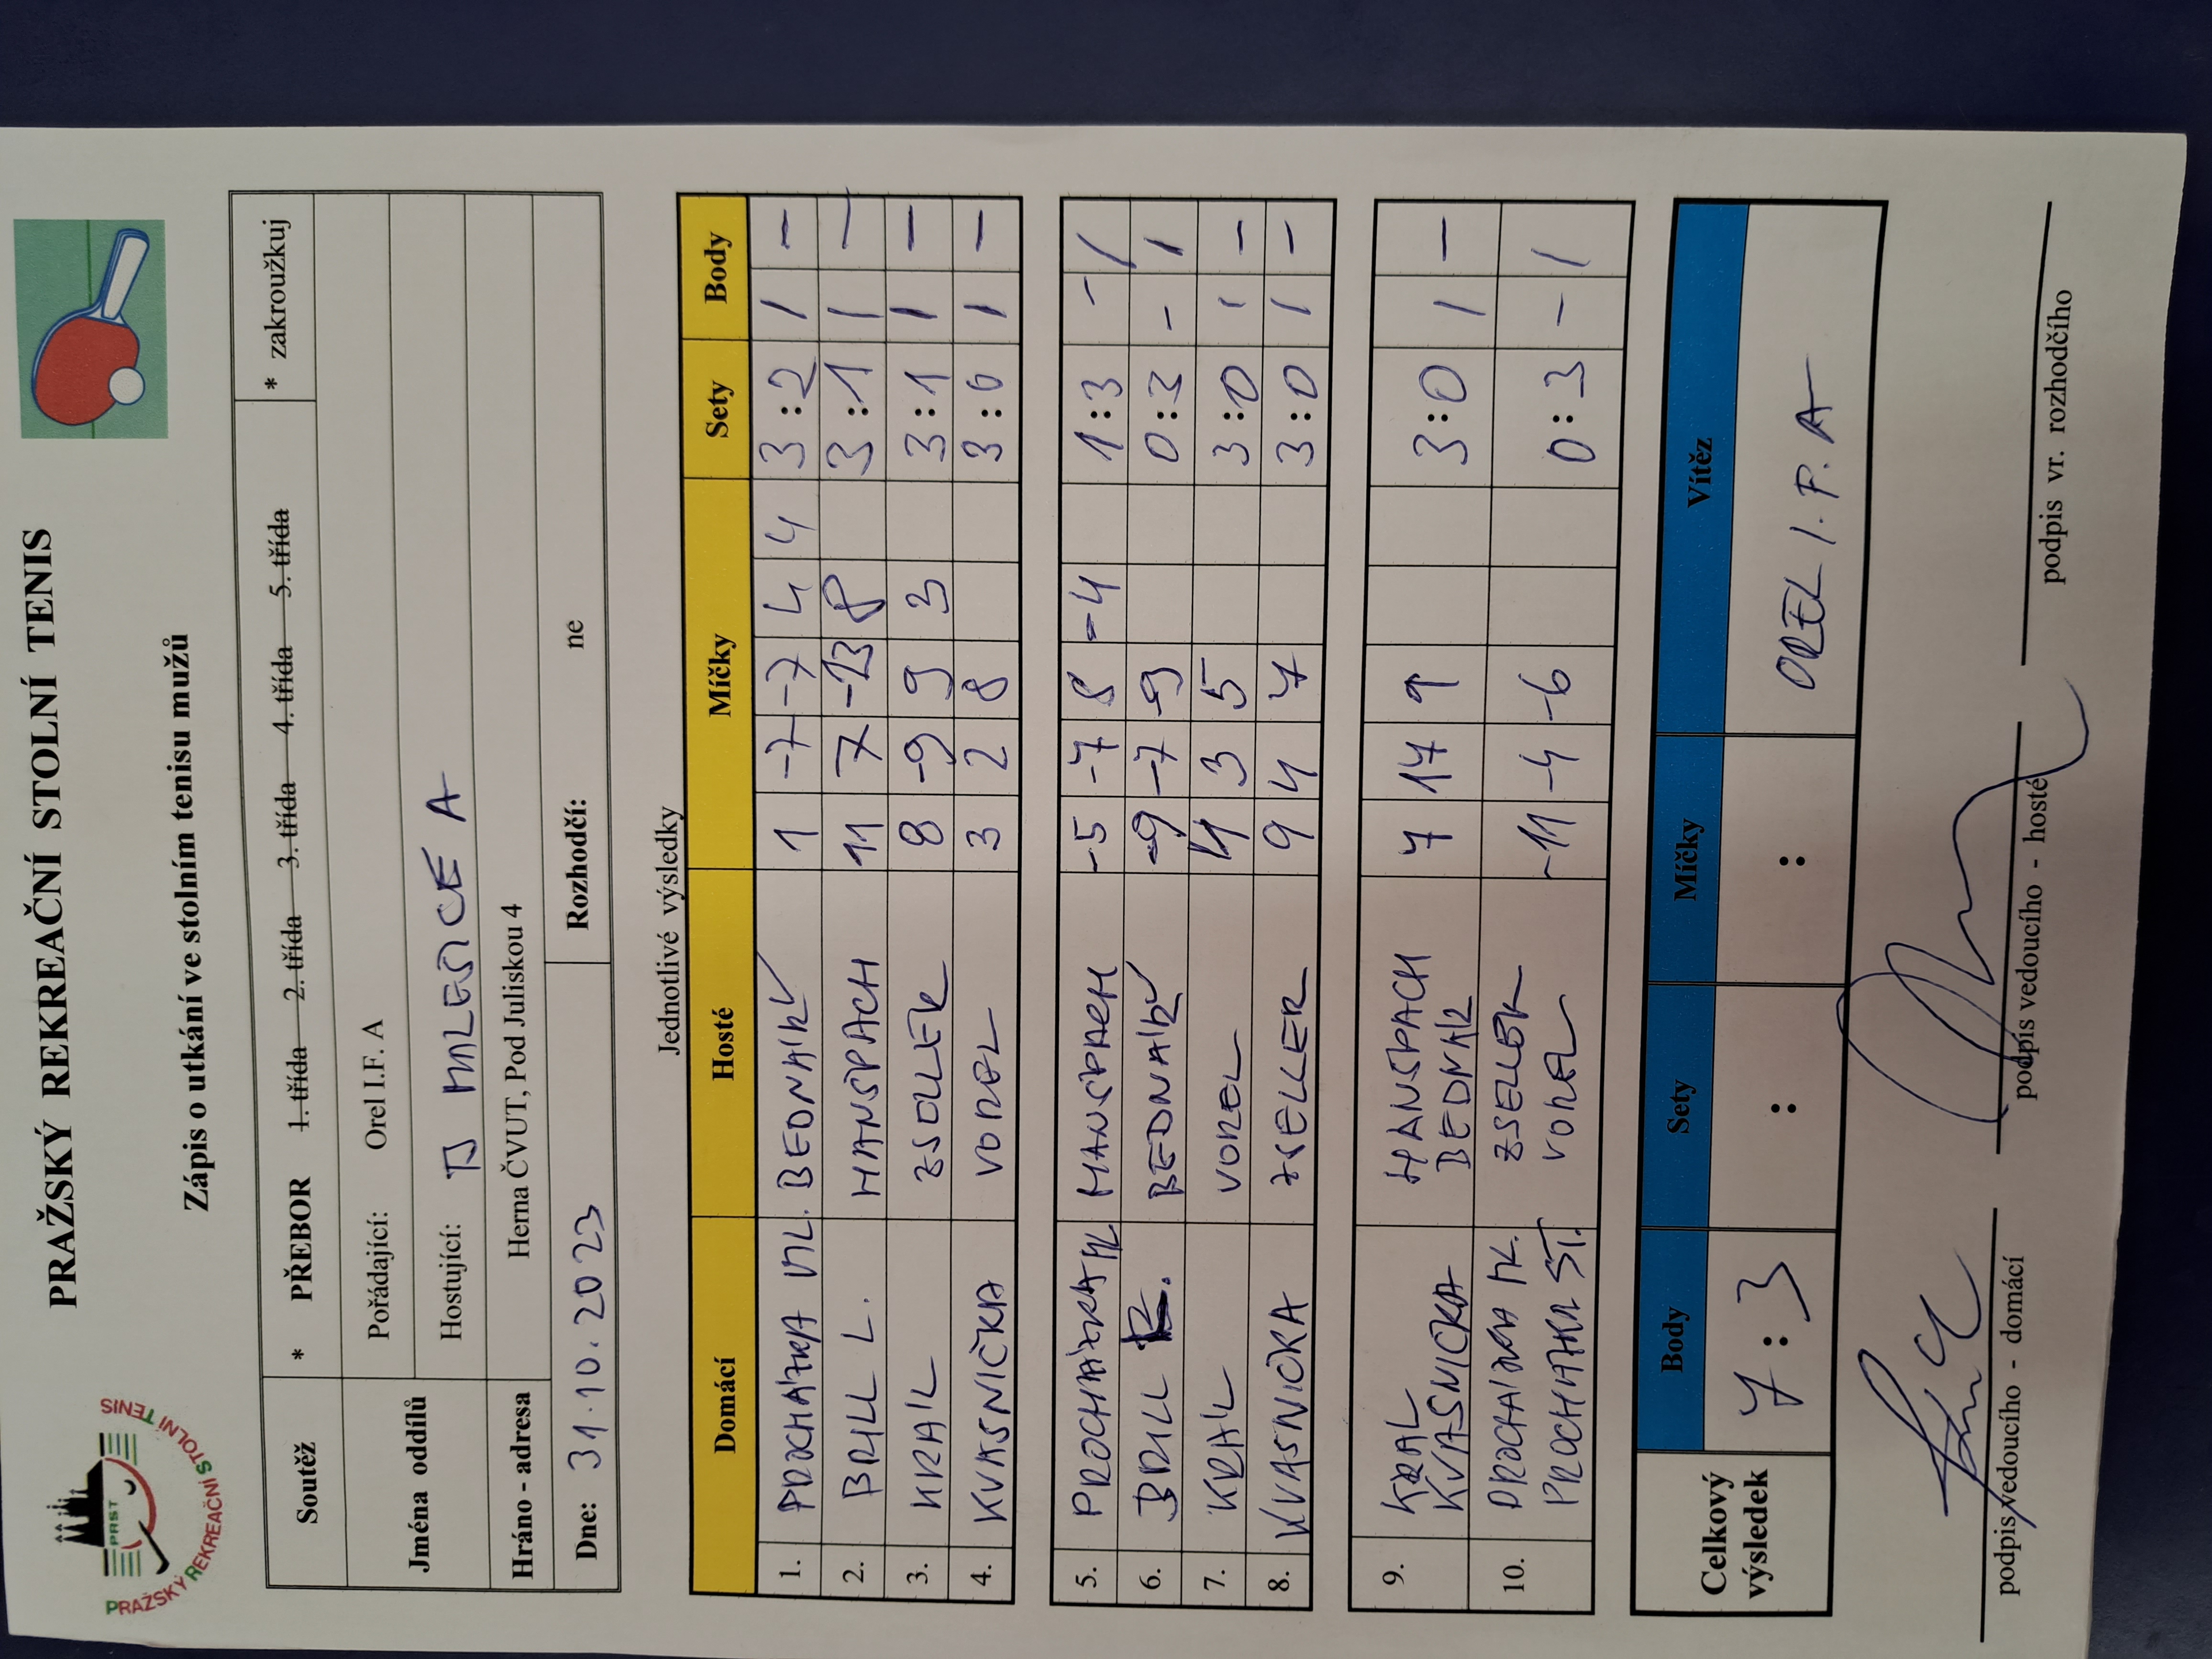 PRAŽSKÝ REKREAČNÍ STOLNÍ TENIS
PRST
PRAŽSKÝ REKREAČNÍ STOLNÍ TENIS
Zápis o utkání ve stolním tenisu mužů
Soutěž * PŘEBOR 1. třída 2. třída 3. třída 4. třída 5. třída * zakroužkuj
Jména oddílů Pořádající: Orel I.F. A
Hostující: TJ MALEŠICE A
Hráno - adresa Herna ČVUT, Pod Juliskou 4
Dne: 31.10.2023 Rozhodčí: ne
Jednotlivé výsledky
Domácí Hosté Míčky Sety Body
1. PROCHÁZKA ML. BEDNÁŘ 1 -7 -7 4 4 3:2 1 -
2. BRILL L. HANSPACH 11 7 -13 8 3:1 1 -
3. KRÁL ZSELLER 8 -9 9 3 3:1 1 -
4. KVASNIČKA VOREL 3 2 8 3:0 1 -
5. PROCHÁZKA ML HANSPACH -5 -7 8 -4 1:3 - 1
6. BRILL BEDNÁŘ -9 -7 -9 0:3 - 1
7. KRÁL VOREL 4 3 5 3:0 1 -
8. KVASNIČKA ZSELLER 9 4 7 3:0 1 -
9. KRÁL HANSPACH 7 17 9 3:0 1 -
KVASNIČKA BEDNÁŘ
10. PROCHÁZKA ML. ZSELLER -11 -4 -6 0:3 - 1
PROCHÁZKA ST. VOREL
Celkový výsledek Body Sety Míčky Vítěz
7:3 : : OREL I.F. A
podpis vedoucího - domácí podpis vedoucího - hosté podpis vr. rozhodčího